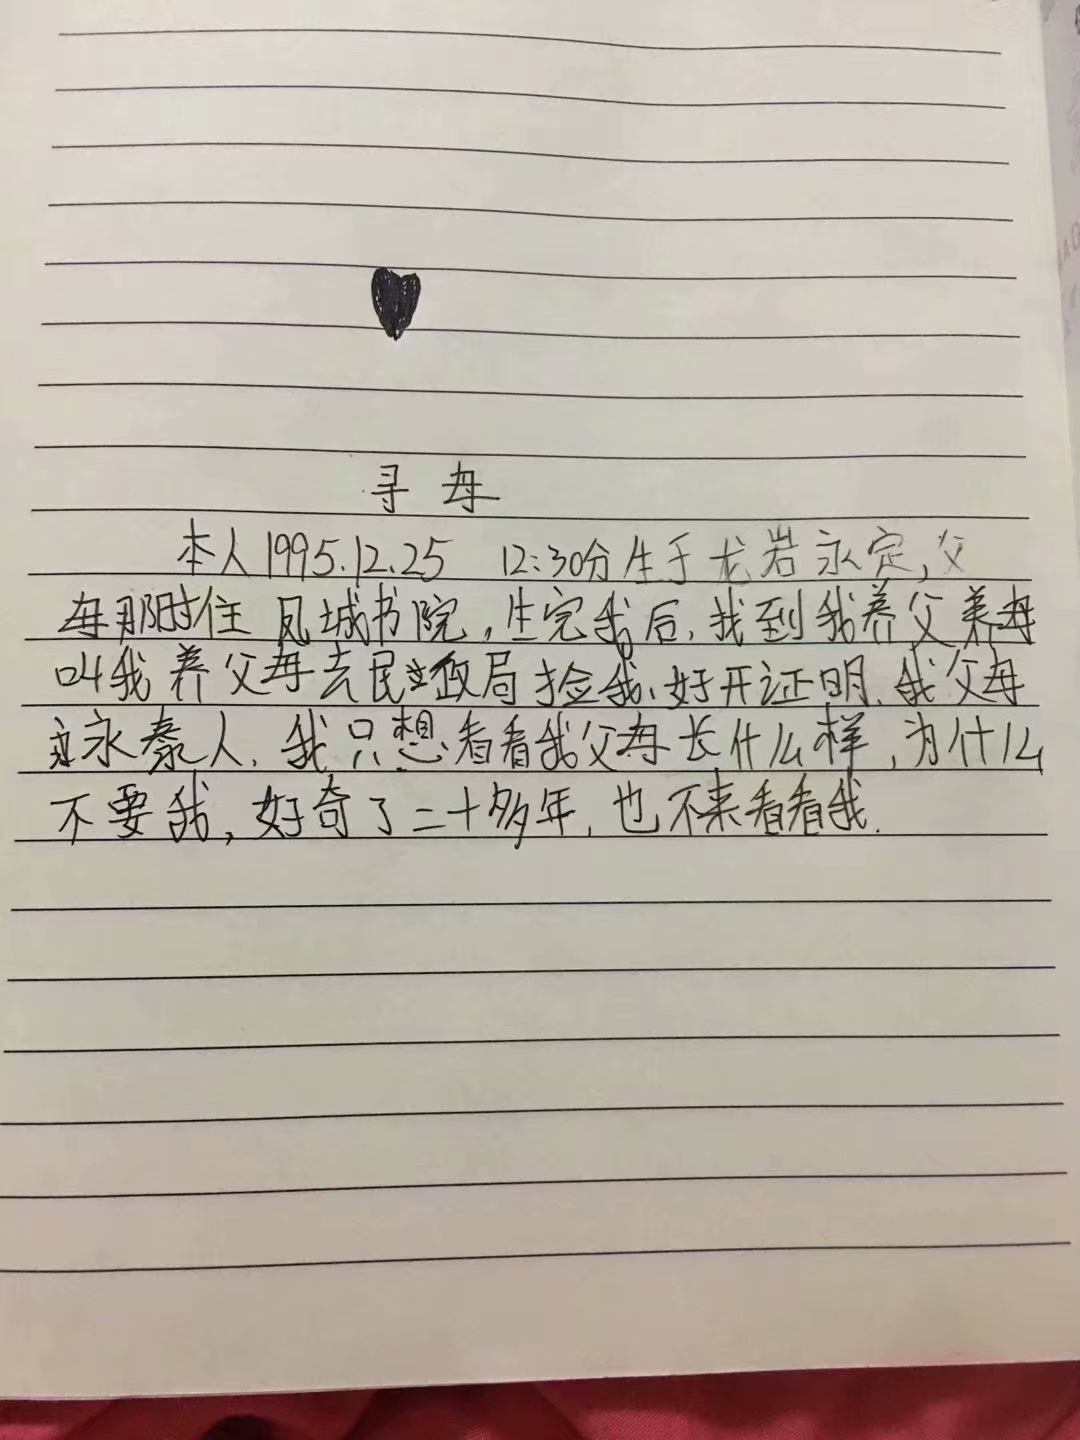 寻母
本人1995.12.25 12:30分生于龙岩永定,父
母那时住凤城书院,生完我后,找到我养父养母
叫我养父母去民政局捡我、好开证明.我父母
永泰人.我只想看看我父母长什么样,为什么
不要我,好奇了二十多年,也不来看看我.